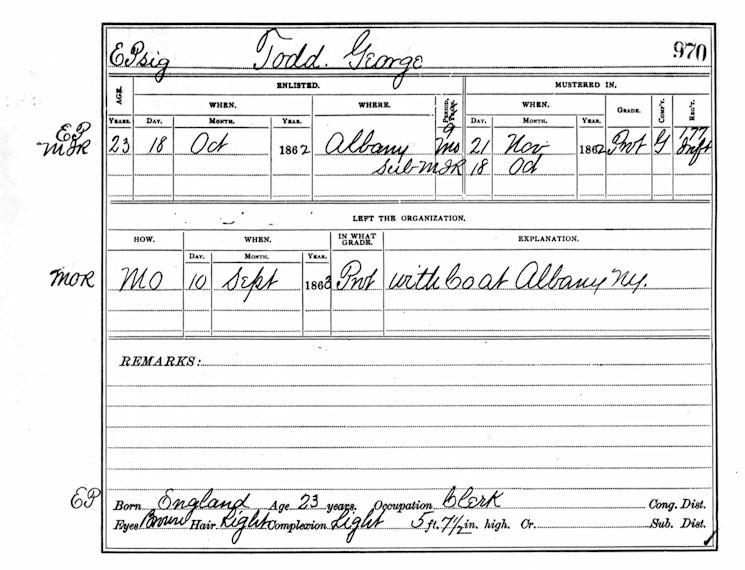 EP sig Todd. George 970
ENLISTED. MUSTERED IN.
AGE. WHEN. WHERE. PERIOD, WHEN. GRADE. COMP'Y. REG'T.
YEARS. DAY. MONTH. YEAR. DAY. MONTH. YEAR.
EP 9 177
MIR 23 18 Oct 1862 Albany Mos 21 Nov 1862 Pvt G Inft
Sub MIR 18 Oct
LEFT THE ORGANIZATION.
HOW. WHEN. IN WHAT GRADE. EXPLANATION.
DAY. MONTH. YEAR.
MOR MO 10 Sept 1863 Pvt with Co at Albany NY.
REMARKS:
EP Born England Age 23 years. Occupation Clerk Cong. Dist.
Eyes Brown Hair Light Complexion Light 5 ft. 7½ in. high. Cr. Sub. Dist.